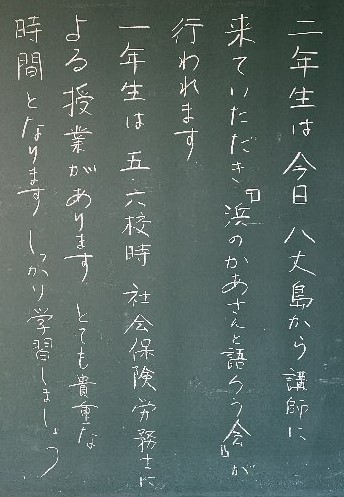 二年生は 今日 八丈島から 講師に
来ていただき『浜のかあさんと語ろう会』が
行われます
一年生は 五・六校時 社会保険労務士に
よる授業があります とても貴重な
時間となります しっかり学習しましょう